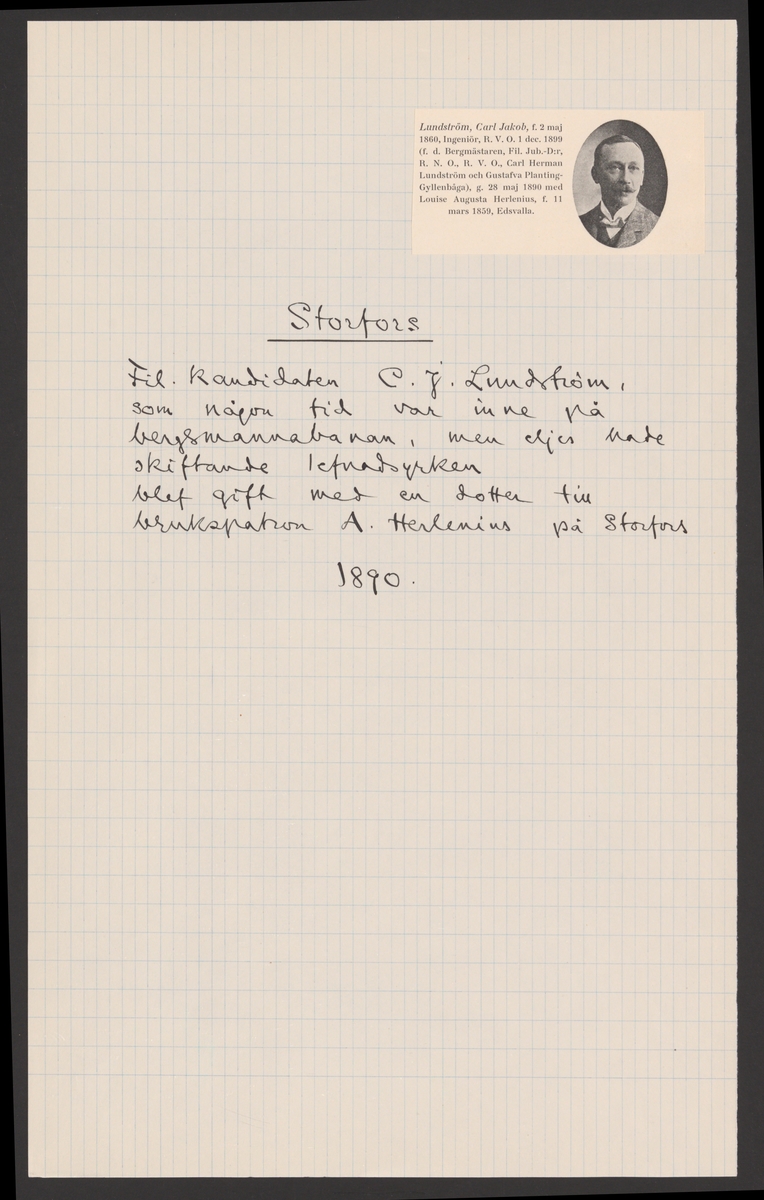 Lundström, Carl Jakob, f. 2 maj
1860, Ingeniör, R. V. O. 1 dec. 1899
(f. d. Bergmästaren, Fil. Jub.-D:r,
R. N. O., R. V. O., Carl Herman
Lundström och Gustafva Planting-
Gyllenbåga), g. 28 maj 1890 med
Louise Augusta Herlenius, f. 11
mars 1859, Edsvalla.
Storfors
Fil. kandidaten C. J. Lundström,
som någon tid var inne på
bergsmannabanan, men eljes hade
skiftande lefnadsyrken
blef gift med en dotter till
brukspatron A. Herlenius på Storfors
1890.